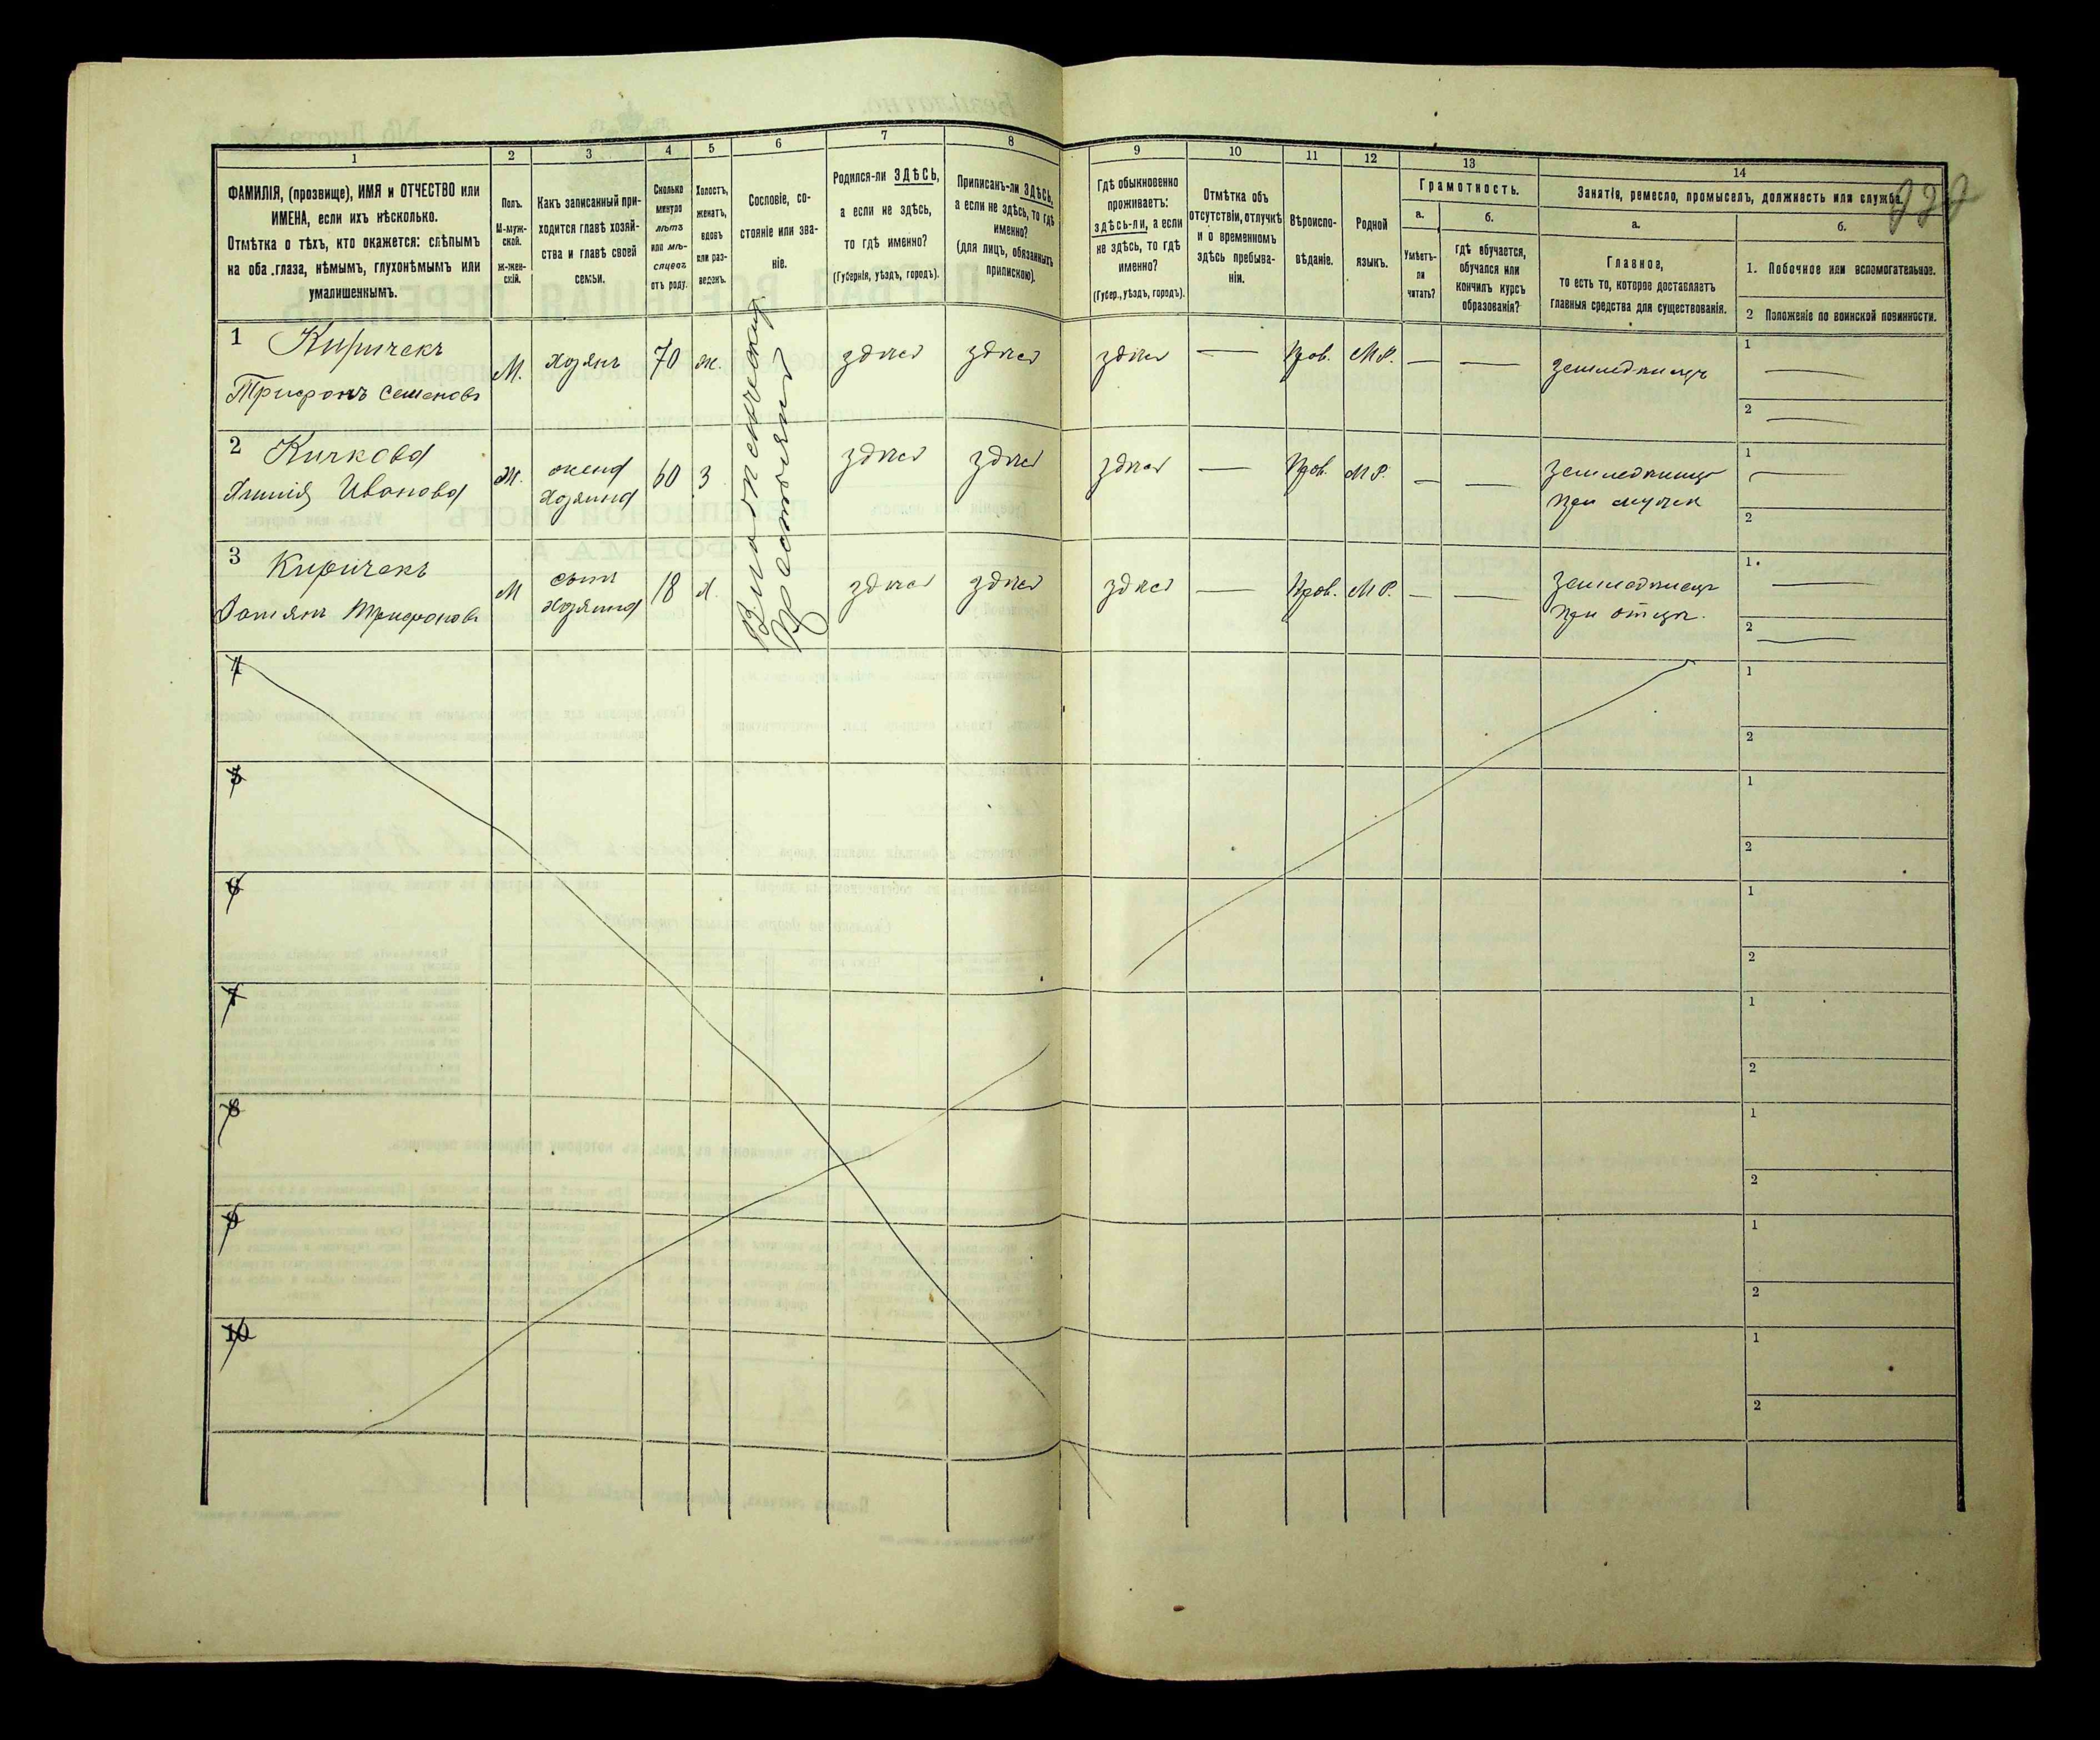 1 2 3 4 5 6 7 8 9 10 11 12 13 14
ФАМИЛІЯ, (прозвище), ИМЯ и ОТЧЕСТВО или
ИМЕНА, если ихъ нѣсколько.
Отмѣтка о тѣхъ, кто окажется: слѣпымъ
на оба глаза, нѣмымъ, глухонѣмымъ или
умалишеннымъ.
Полъ.
М-муж-
ской.
Ж-жен-
скій.
Какъ записанный при-
ходится главѣ хозяй-
ства и главѣ своей
семьи.
Сколько
минуло
лѣтъ
или мѣ-
сяцевъ
отъ роду.
Холостъ,
женатъ,
вдовъ
или раз-
веденъ.
Сословіе, со-
стояніе или зва-
ніе.
Родился-ли ЗДѢСЬ,
а если не здѣсь,
то гдѣ именно?
(Губернія, уѣздъ, городъ).
Приписанъ-ли ЗДѢСЬ,
а если не здѣсь, то гдѣ
именно?
(для лицъ, обязанныхъ
припискою).
Гдѣ обыкновенно
проживаетъ:
здѣсь-ли, а если
не здѣсь, то гдѣ
именно?
(Губер., уѣздъ, городъ).
Отмѣтка объ
отсутствіи, отлучкѣ
и о временномъ
здѣсь пребыва-
ніи.
Вѣроиспо-
вѣданіе.
Родной
языкъ.
Грамотность.
а.
Умѣетъ-
ли
читать?
б.
Гдѣ обучается,
обучался или
кончилъ курсъ
образованія?
Занятія, ремесло, промыселъ, должность или служба.
а.
Главное,
то есть то, которое доставляетъ
главныя средства для существованія.
б.
1. Побочное или вспомогательное.
2 Положеніе по воинской повинности.
1 Киричекъ
Трифонъ Семеновъ
М. хозяинъ 70 ж. здѣсь здѣсь здѣсь — Прав. МР. — — земледѣлецъ
1 —
2 —
2 Кичкова
Ивановa
Ж. жена
хозяина 60 З здѣсь здѣсь здѣсь — Прав. МР. — — земледѣлица
при мужѣ
1 —
2
3 Киричекъ
Трифоновъ
М сынъ
хозяина 18 Х. здѣсь здѣсь здѣсь — Прав. МР. — — земледѣлецъ
при отцѣ.
1 —
2 —
крестьянинъ
4
1
2
5
1
2
6
1
2
7
1
2
8
1
2
9
1
2
10
1
2